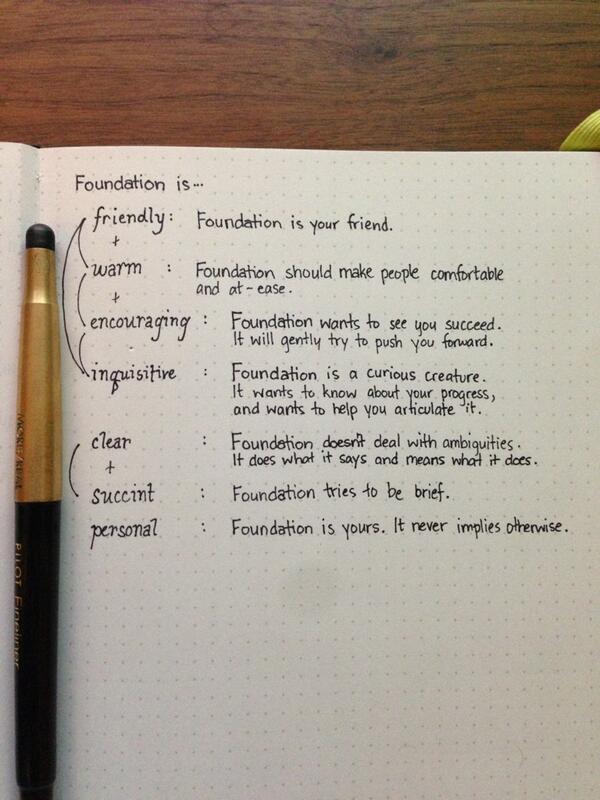 Foundation is...
friendly: Foundation is your friend.
+
warm : Foundation should make people comfortable
and at-ease.
+
encouraging : Foundation wants to see you succeed.
It will gently try to push you forward.
inquisitive : Foundation is a curious creature.
It wants to know about your progress,
and wants to help you articulate it.
clear : Foundation doesn't deal with ambiguities.
It does what it says and means what it does.
+
succint : Foundation tries to be brief.
personal : Foundation is yours. It never implies otherwise.
PILOT Fineliner